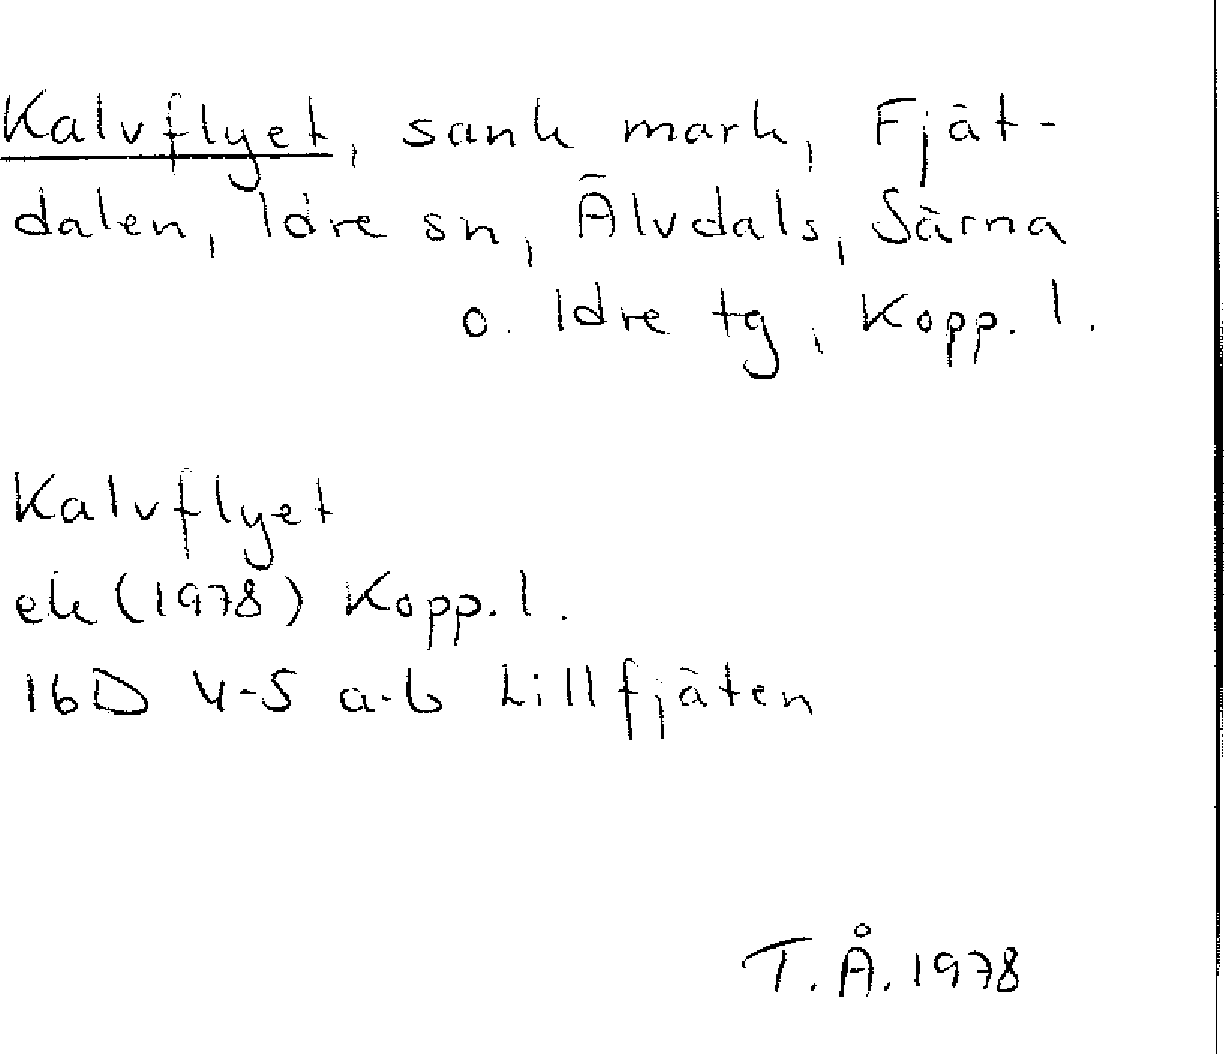 Kalvflyet, sank mark, Fjät-
dalen, Idre sn, Älvdals, Särna
o. Idre tg, Kopp. l.
Kalvflyet
ek (1978) Kopp. l.
16D 4-5 a-b Lillfjäten
T. Å. 1978